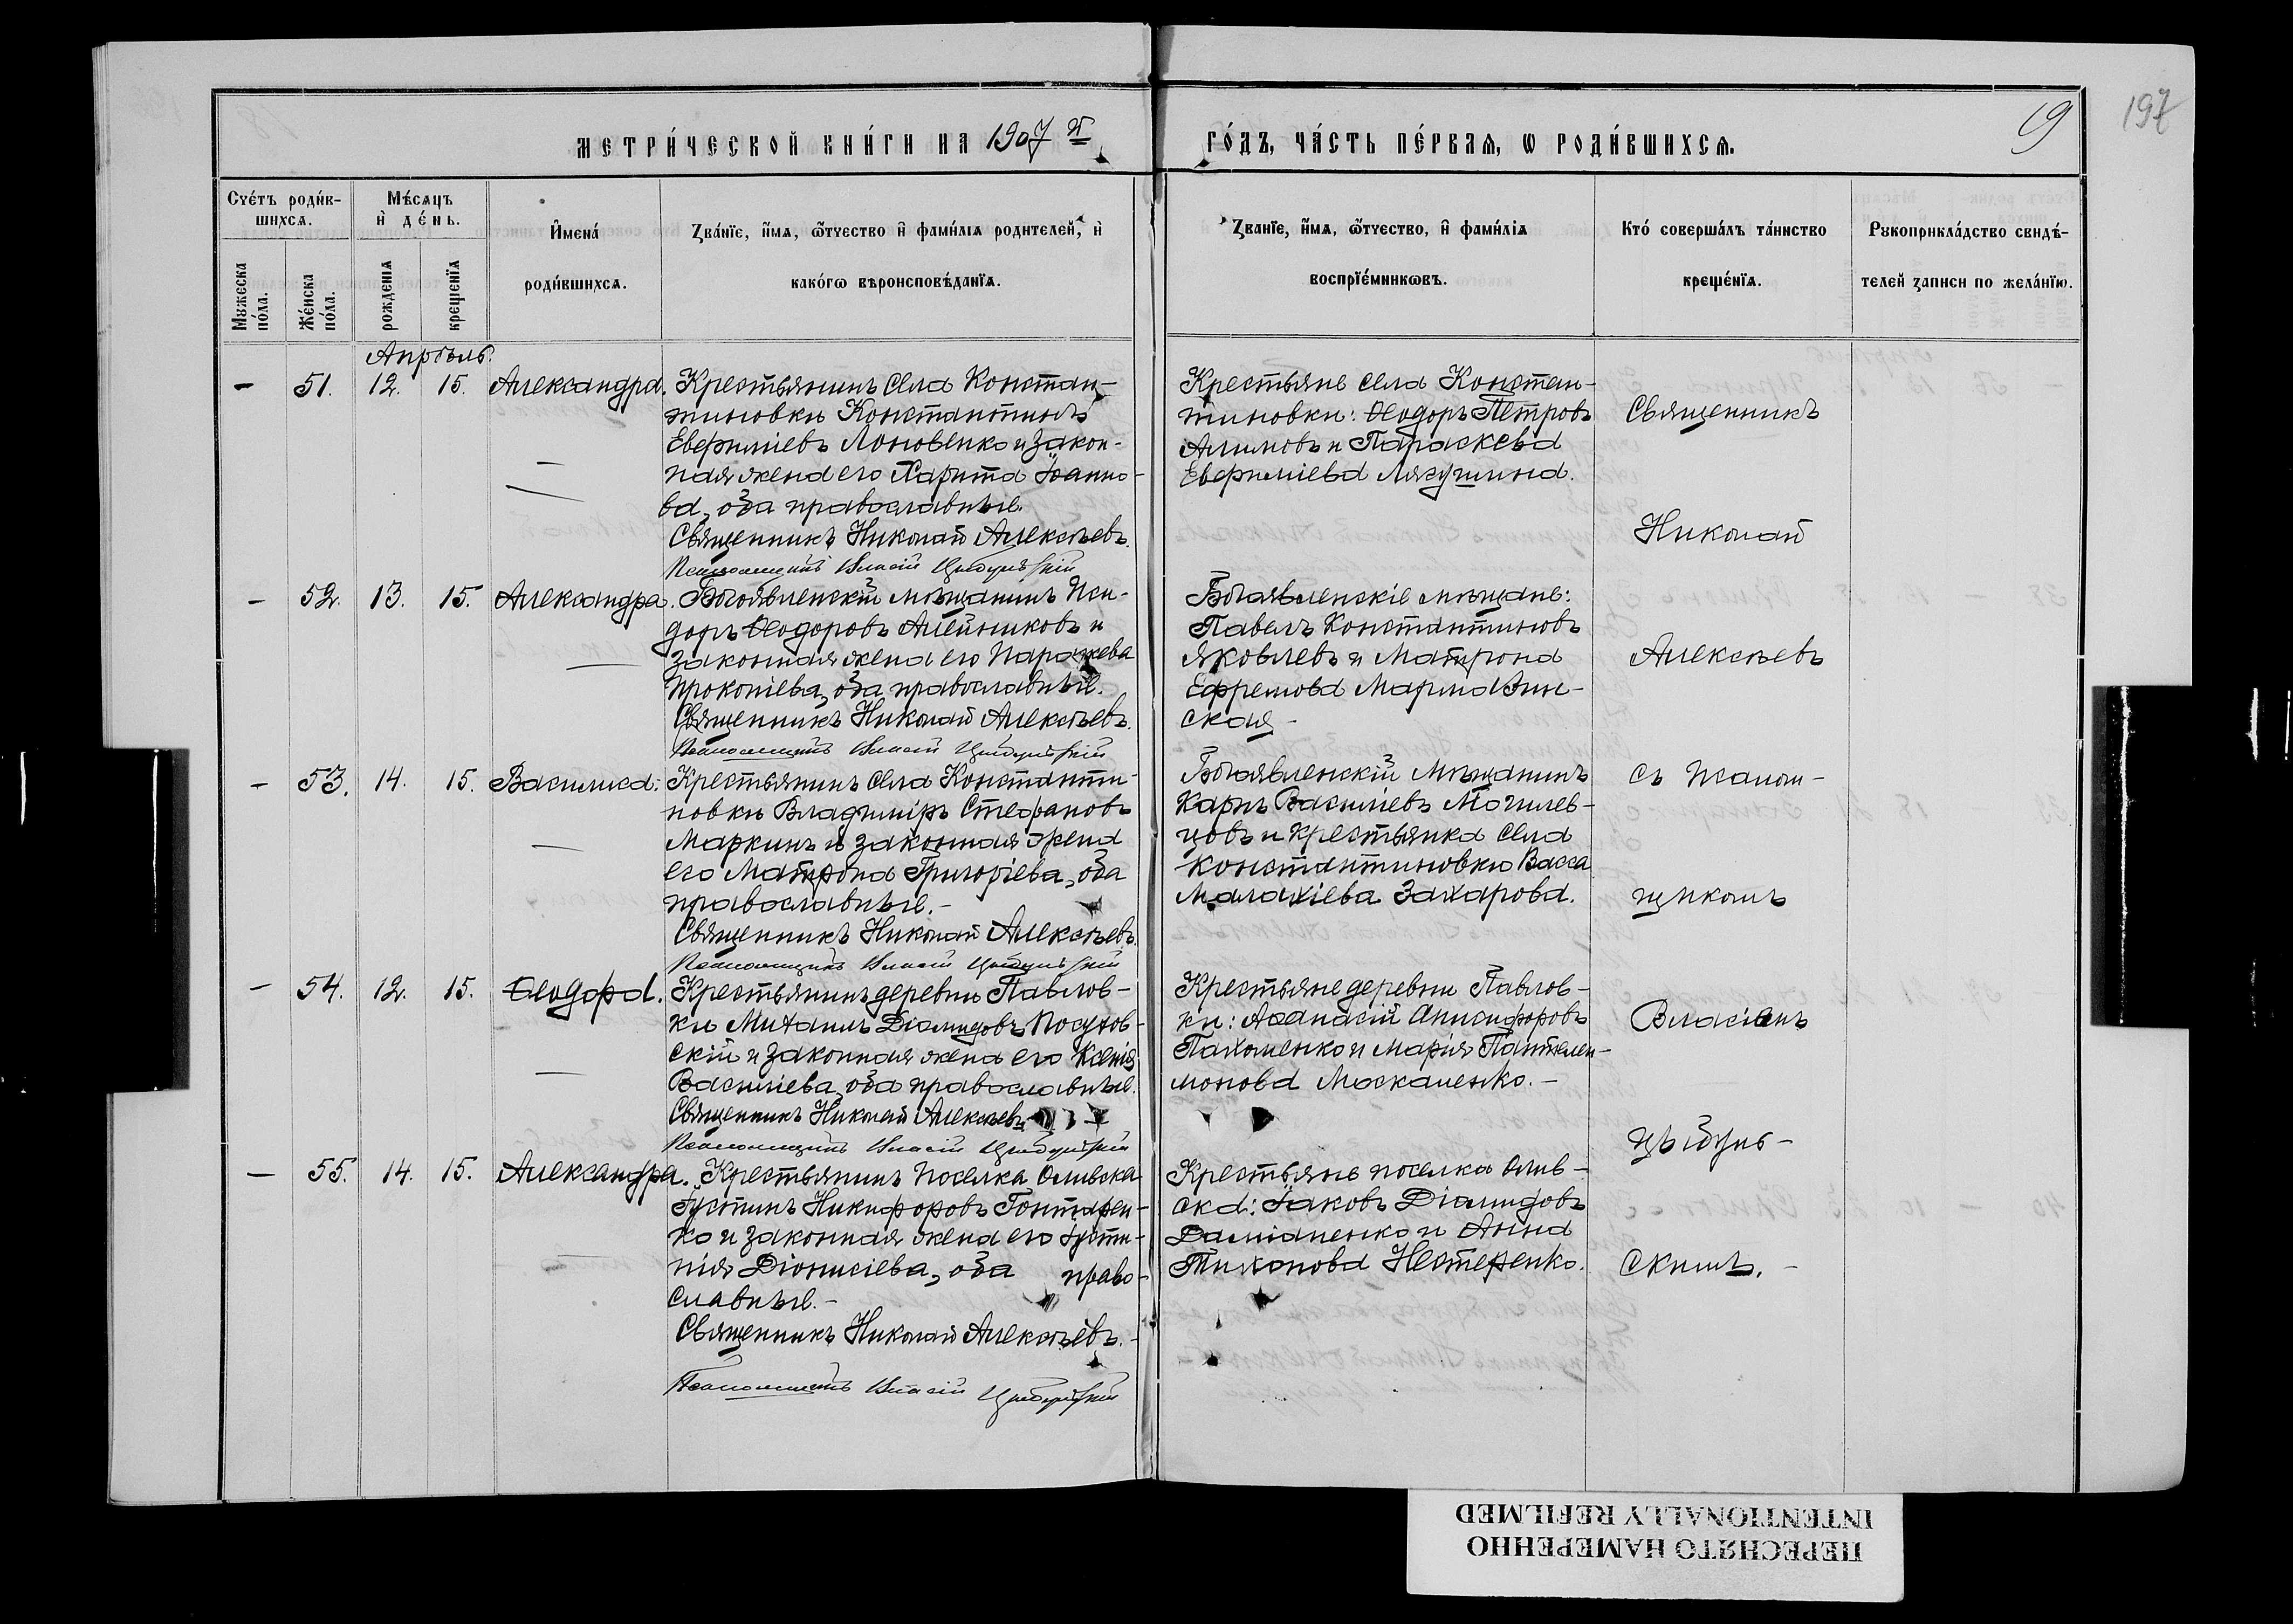 197
19
МЕТРИ́ЧЕСКОЙ КНИ́ГИ НА 1907 й
ГО́ДЪ, ЧА́СТЬ ПЕ́РВАѦ, Ѡ РОДИ́ВШИХСѦ.
Сче́тъ роди́в-
шихсѧ.
Мѣ́сѧцъ
и҆ де́нь.
И҆мена́
роди́вшихсѧ.
Зва́нїе, и҆́мѧ, ѻ҆́тчество и҆ фами́лїѧ родителей, и҆
како́гѡ вѣроисповѣ́данїѧ.
Зва́нїе, и҆́мѧ, ѻ҆́тчество, и҆ фами́лїѧ
воспрїе́мникѡвъ.
Кто́ соверша́лъ та́инство
креще́нїѧ.
Рꙋкоприкла́дство свидѣ́-
телей записи по жела́нїю.
Мꙋжеска
по́ла.
Же́нска
по́ла.
рожденїѧ
крещенїѧ
Апрѣль.
— 51. 12. 15. Александра. Крестьянинъ села Констан-
тиновки Константинъ
Евфиміевъ Лоновенко и закон-
ная жена его Харита Іоанно-
ва, оба православные.
Священникъ Николай Алексѣевъ.
Псаломщикъ Власій Цыбульскій
Крестьяне села Констан-
тиновки: Ѳеодоръ Петровъ
Алимовъ и Параскева
Евфиміева Лягушина.
Священникъ
Николай
— 52. 13. 15. Александра. Богоявленскій мѣщанинъ Иси-
доръ Ѳеодоровъ Алейниковъ и
законная жена его Параскева
Прокопіева, оба православные.
Священникъ Николай Алексѣевъ.
Псаломщикъ Власій Цыбульскій
Богоявленскіе мѣщане:
Павелъ Константиновъ
Яковлевъ и Матрона
Ефремова
ская -
Алексѣевъ
— 53. 14. 15. Василиса. Крестьянинъ села Константи-
новки Владиміръ Стефановъ
Маркинъ и законная жена
его Матрона Григоріева, оба
православные. -
Священникъ Николай Алексѣевъ.
Псаломщикъ Власій Цыбульскій
Богоявленскій мѣщанинъ
Карпъ Васильевъ Могилев-
цовъ и крестьянка села
Константиновки Васса
Малахіева Захарова.
съ псалом-
щикомъ
— 54. 12. 15. Ѳеодора. Крестьянинъ деревни Павлов-
ки Михаилъ Діомидовъ Посухов-
скій и законная жена его Ксенія
Васильева, оба православные.
Священникъ Николай Алексѣевъ
Псаломщикъ Власій Цыбульскій
Крестьяне деревни Павлов-
ки: Аѳанасій Онисифоровъ
Пахоменко и Марія Пантелеи-
монова Москаленко. -
Власіемъ
Цыбуль-
— 55. 14. 15. Александра. Крестьянинъ поселка Оливска
Іустинъ Никифоровъ Гонтарен-
ко и законная жена его Іусти-
нія Діонисіева, оба право-
славные. -
Священникъ Николай Алексѣевъ. -
Псаломщикъ Власій Цыбульскій
Крестьяне поселка Олив-
ска: Іаковъ Діомидовъ
Даміаненко и Анна
Тихонова Нестеренко.
скимъ. -
INTENTIONALLY REFILMED
ПЕРЕСНЯТО НАМЕРЕННО